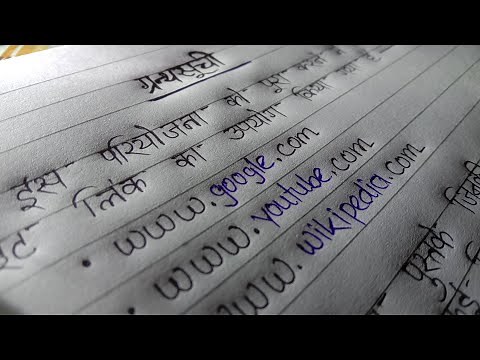 ग्रन्थसूची
इस परियोजना को पूरा करने
लिंक का उपयोग किया गया है
• www.google.com
• www.youtube.com
www.wikipedia.com
पुस्तके जिनकी